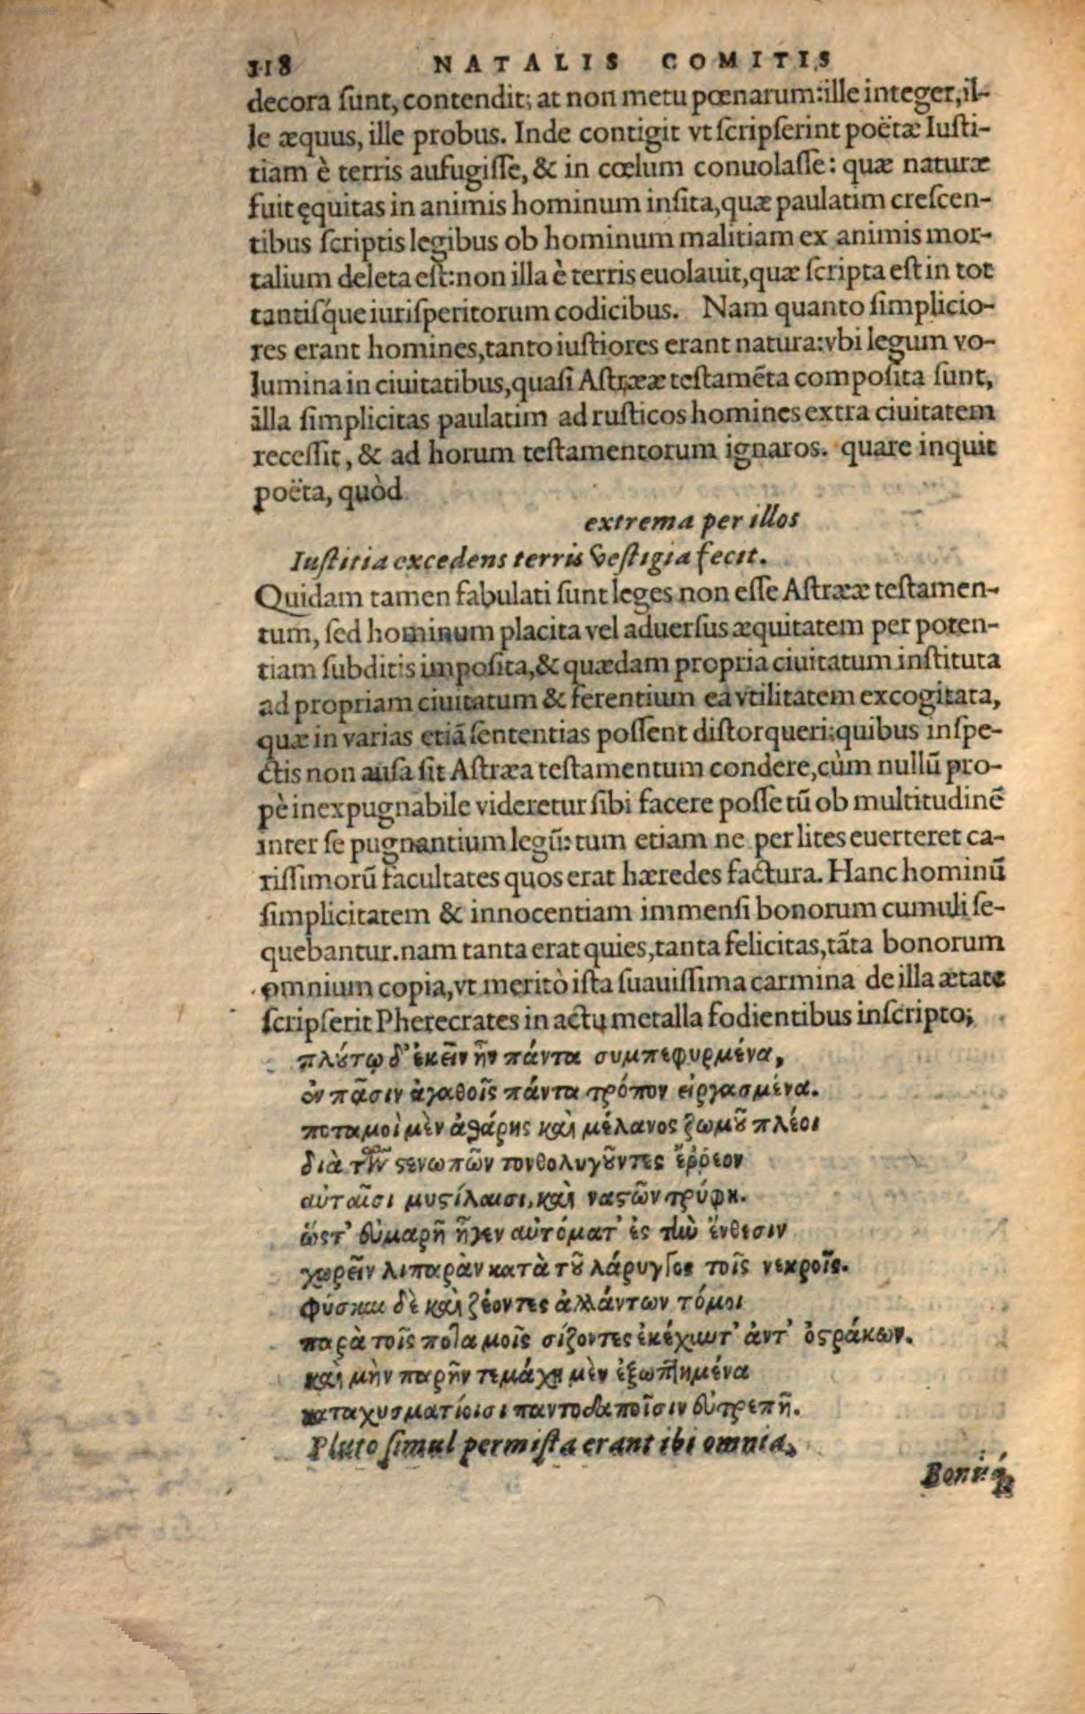 118 NATALIS COMITIS
decora sunt, contendit; at non metu pœnarum: ille integer, il-
le æquus, ille probus. Inde contigit vt scripserint poëtæ Iusti-
tiam è terris aufugisse, & in cœlum conuolasse: quæ naturæ
fuit ęquitas in animis hominum insita, quæ paulatim crescen-
tibus scriptis legibus ob hominum malitiam ex animis mor-
talium deleta est: non illa è terris euolauit, quæ scripta est in tot
tantisq́ue iurisperitorum codicibus. Nam quanto simplicio-
res erant homines, tanto iustiores erant natura: vbi legum vo-
lumina in ciuitatibus, quasi Astrææ testamēta composita sunt,
illa simplicitas paulatim ad rusticos homines extra ciuitatem
recessit, & ad horum testamentorum ignaros. quare inquit
poëta, quòd
extrema per illos
Iustitia excedens terris vestigia fecit.
Quidam tamen fabulati sunt leges non esse Astrææ testamen-
tum, sed hominum placita vel aduersus æquitatem per poten-
tiam subditis imposita, & quædam propria ciuitatum instituta
ad propriam ciuitatum & ferentium ea vtilitatem excogitata,
quæ in varias etiā sententias possent distorqueri: quibus inspe-
ctis non ausa sit Astræa testamentum condere, cùm nullū pro-
pè inexpugnabile videretur sibi facere posse tū ob multitudinē
inter se pugnantium legū: tum etiam ne per lites euerteret ca-
rissimorū facultates quos erat hæredes factura. Hanc hominū
simplicitatem & innocentiam immensi bonorum cumuli se-
quebantur. nam tanta erat quies, tanta felicitas, tāta bonorum
omnium copia, vt meritò ista suauissima carmina de illa ætate
scripserit Pherecrates in actu metalla fodientibus inscripto;
πλούτῳ δ' ἐκεῖν ἦν πάντα συμπεφυρμένα,
ἐν πᾶσιν ἀγαθοῖς πάντα τρόπον εἰργασμένα.
ποταμοὶ μὲν ἀθάρης καὶ μέλανος ζωμοῦ πλέοι
διὰ τῶν στενωπῶν τονθολυγοῦντες ἔῤῥεον
αὐταῖσι μυστίλαισι, καὶ ναστῶν τρύφη.
ὥστ' εὐμαρῆ ἦγεν αὐτόματ' ἐς τὴν ἔνθεσιν
χωρεῖν λιπαρὰν κατὰ τοῦ λάρυγγος τοῖς νεκροῖς.
φύσκαι δὲ καὶ ζέοντες ἀλλάντων τόμοι
παρὰ τοῖς ποταμοῖς σίζοντες ἐκέχυντ' ἀντ' ὀστράκων.
καὶ μὴν παρῆν τεμάχη μὲν ἐξωπτημένα
καταχυσματίοισι παντοδαποῖσιν εὐτρεπῆ.
Pluto simul permista erant ibi omnia,